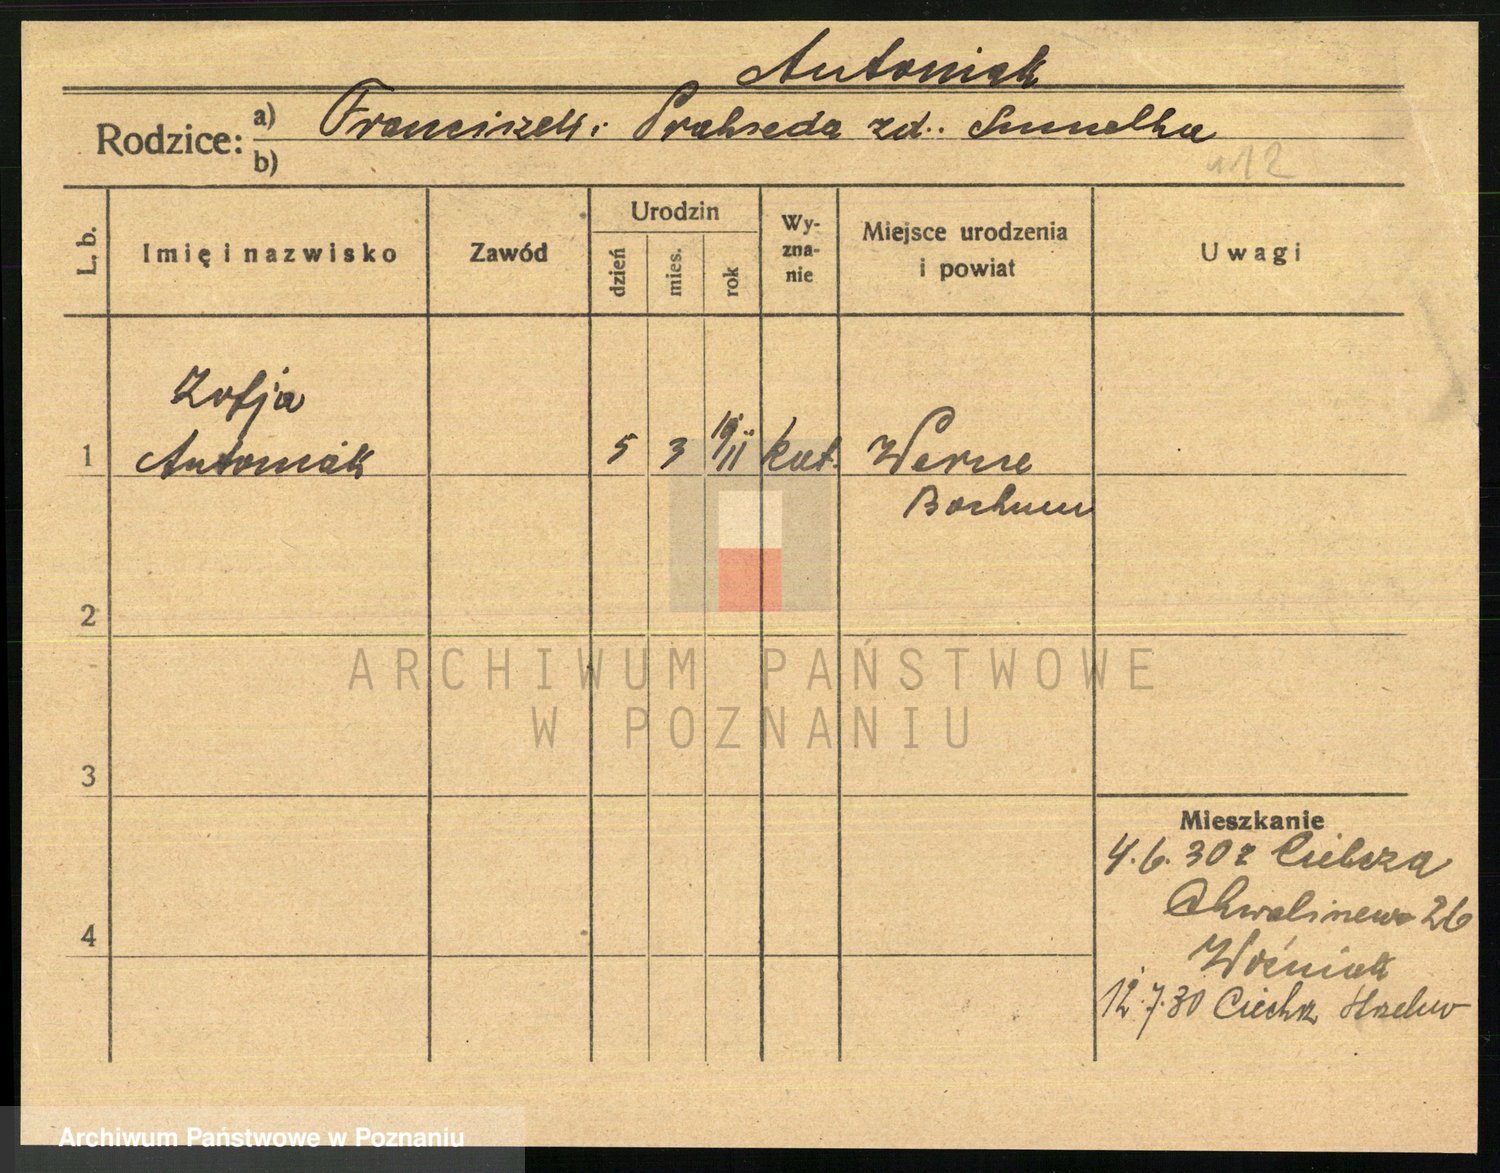 Antoniak
Rodzice: a) Franciszek i Prakseda zd.
b)
412
L. b. Imię i nazwisko Zawód Urodzin dzień mies. rok Wyznanie Miejsce urodzenia i powiat Uwagi
Zofja
1 Antoniak 5 3 1911 kat. Werne
Bochum
2
3
Mieszkanie
4.6.30 z Cielcza
Chwaliszewo 26
4
Woźniak
12.7.30
ARCHIWUM PAŃSTWOWE
W POZNANIU
Archiwum Państwowe w Poznaniu